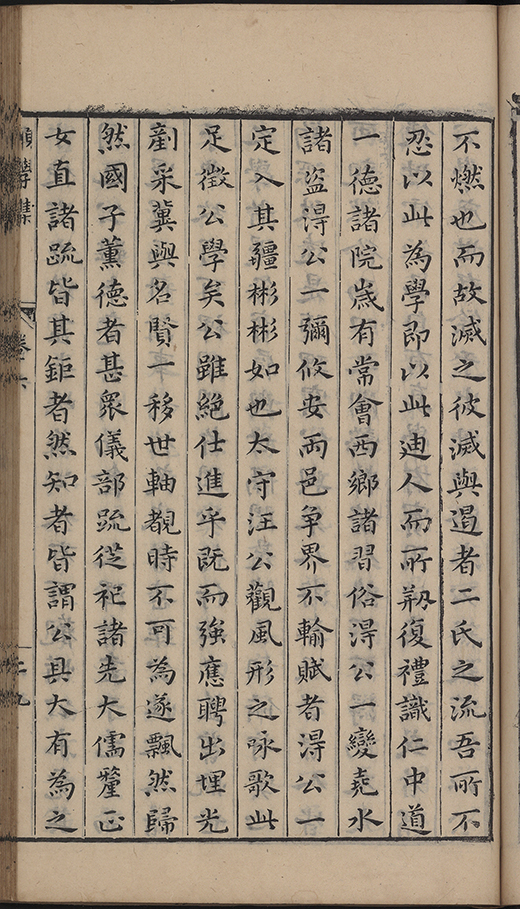 不燃也而故滅之彼滅與遏者二氏之流吾所不
忍以此為學即以此迪人而所剏復禮識仁中道
一德諸院歲有常會西鄉諸習俗得公一變堯水
諸盜得公一彌攸安兩邑爭界不輸賦者得公一
定入其疆彬彬如也太守汪公觀風形之咏歌此
足徵公學矣公雖絕仕進乎既而強應聘出埋光
剷采冀與名賢一移世軸覩時不可為遂飄然歸
然國子薰德者甚衆儀部䟽從祀諸先大儒釐正
女直諸䟽皆其鉅者然知者皆謂公具大有為之
願學集
卷六
二九